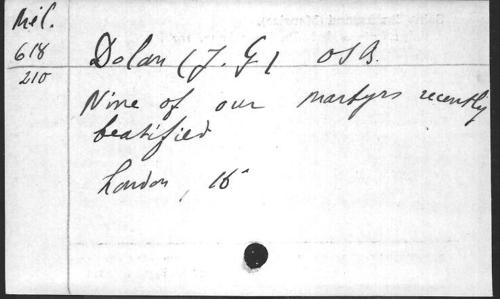 Mél.
618
210
Dolan (J. G.) OSB.
Nine of our martyrs recently
beatified
London, 16°